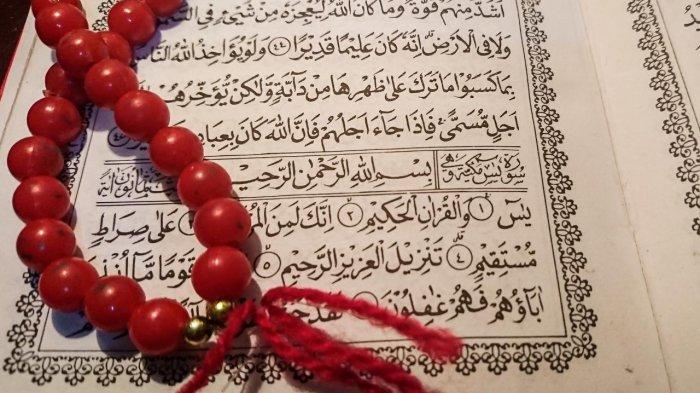 اَشَدَّ مِنْهُمْ قُوَّةً وَمَا كَانَ اللّٰهُ لِيُعْجِزَهٗ مِنْ شَيْءٍ فِي
وَلَا فِي الْاَرْضِ اِنَّهٗ كَانَ عَلِيْمًا قَدِيْرًا ٤٤ وَلَوْ يُؤَاخِذُ اللّٰهُ النَّاسَ
بِمَا كَسَبُوْا مَا تَرَكَ عَلٰى ظَهْرِهَا مِنْ دَآبَّةٍ وَّلٰكِنْ يُّؤَخِّرُهُمْ
اَجَلٍ مُّسَمًّى فَاِذَا جَآءَ اَجَلُهُمْ فَاِنَّ اللّٰهَ كَانَ
سورة يس مكية وهى بِسْمِ اللّٰهِ الرَّحْمٰنِ الرَّحِيْمِ
يٰسٓ ١ وَالْقُرْاٰنِ الْحَكِيْمِ ٢ اِنَّكَ لَمِنَ عَلٰى صِرَاطٍ
مُّسْتَقِيْمٍ ٤ تَنْزِيْلَ الْعَزِيْزِ الرَّحِيْمِ ٥ قَوْمًا مَّآ
اٰبَآؤُهُمْ فَهُمْ غٰفِلُوْنَ